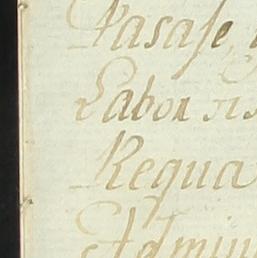 Pasaje,
Labor
Requa
Admin